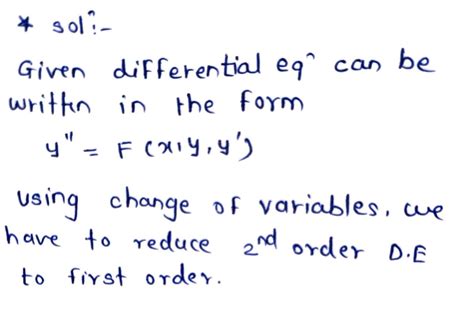 * solⁿ:-
Given differential eqⁿ can be
written in the form
y" = F (x,y,y')
using change of variables, we
have to reduce 2nd order D.E
to first order.